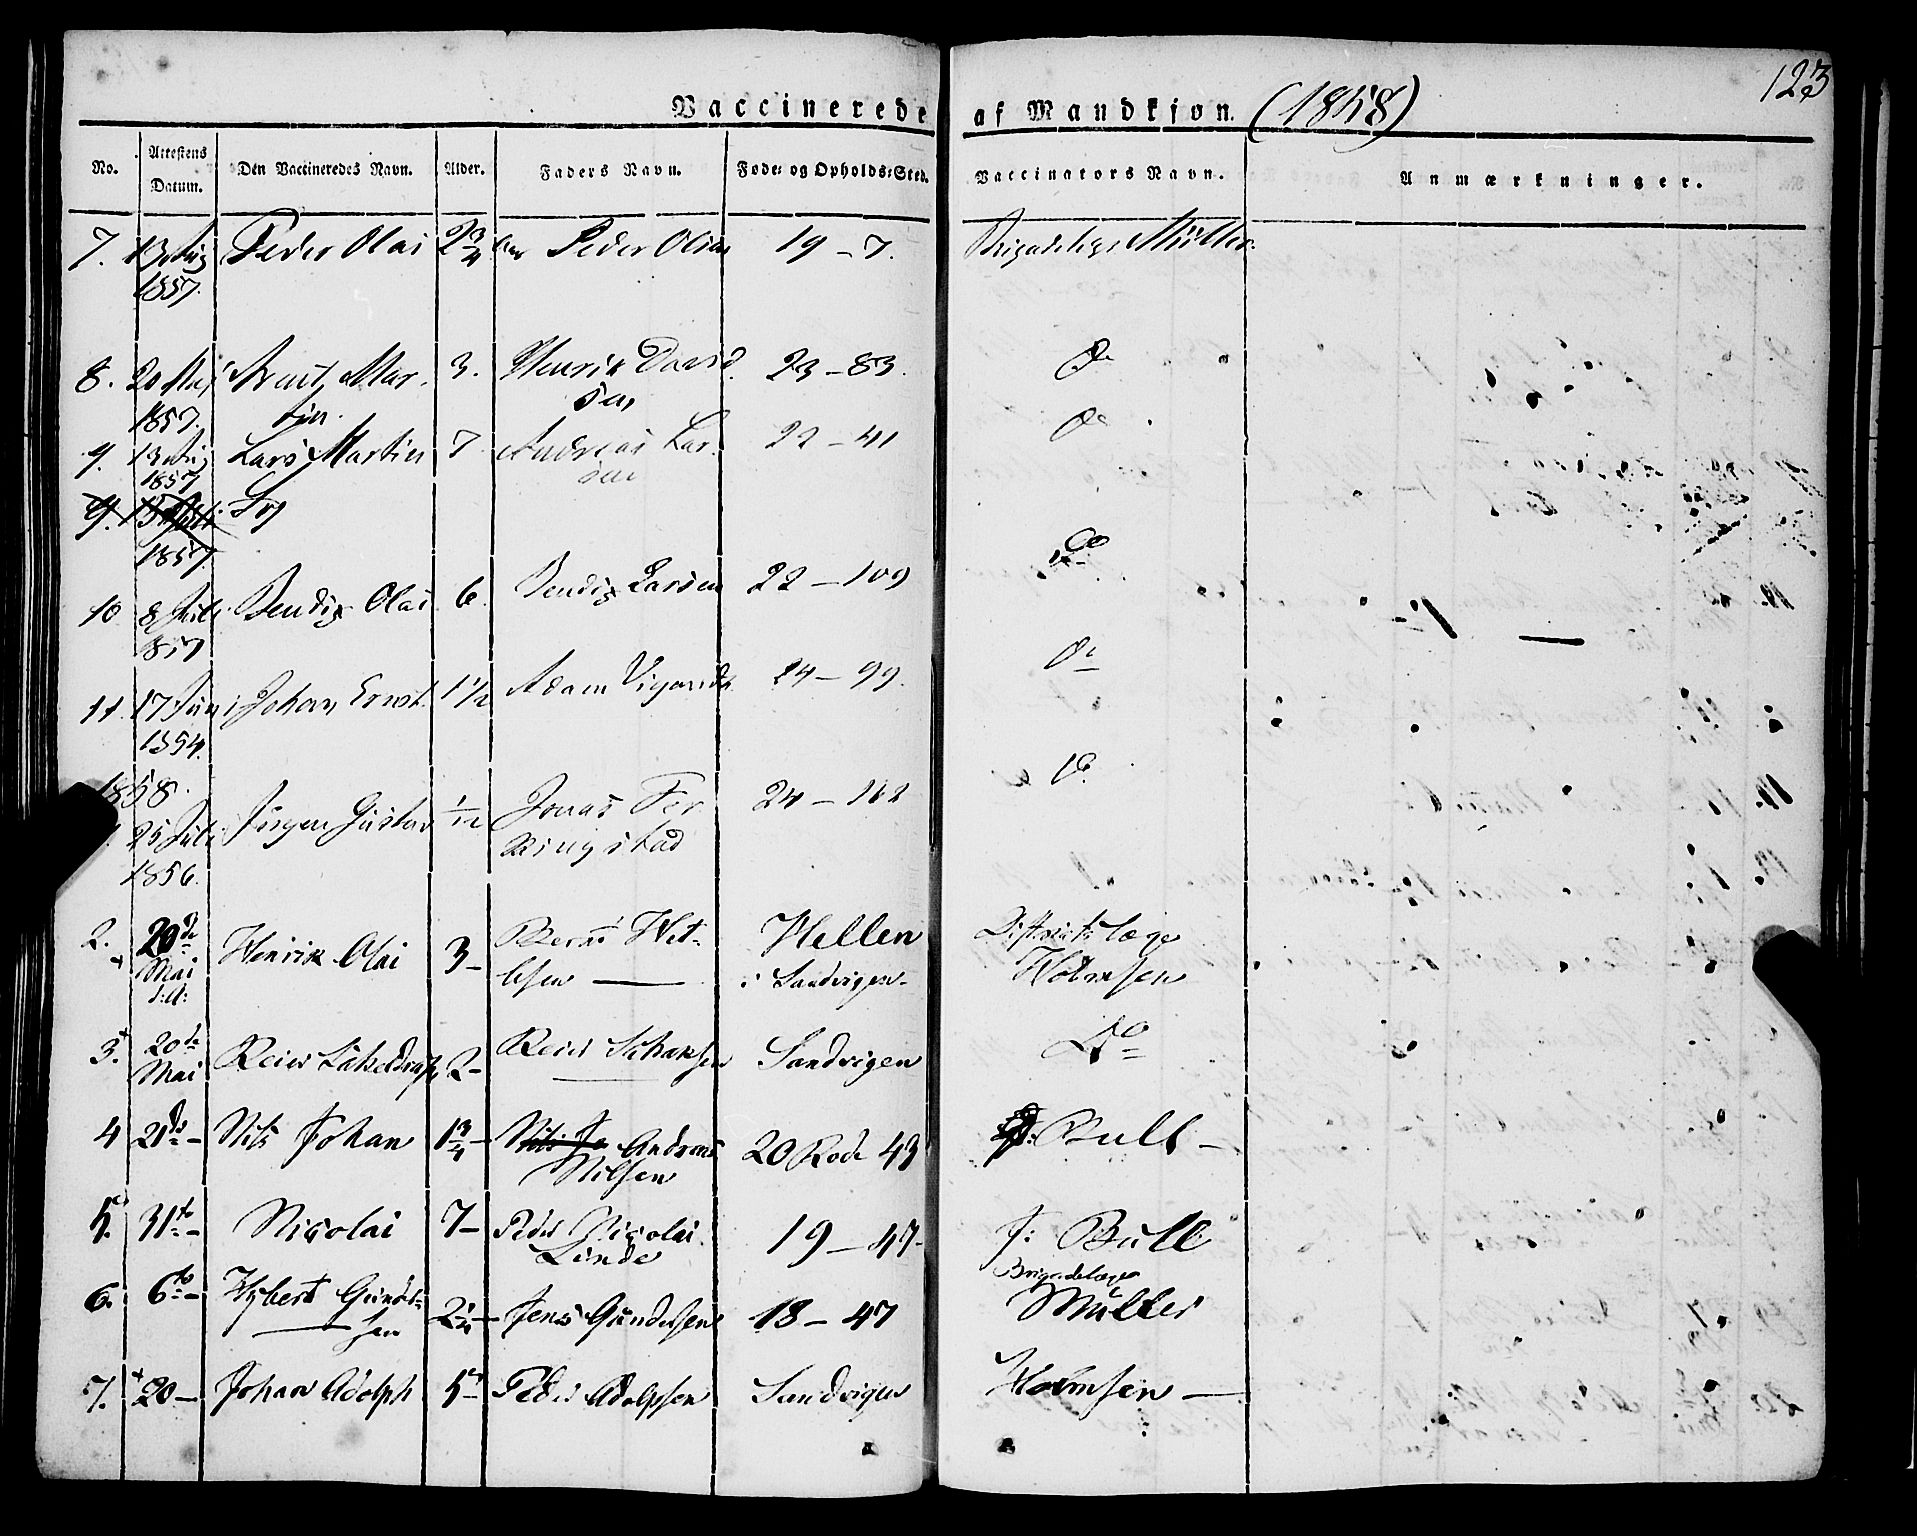 123
Vaccinerede af Mandkjøn. (1858)
No. Attestens Datum. Den Vaccineredes Navn. Alder. Faders Navn. Føde- og Opholds-Sted. Vaccinators Navn. Anmærkninger.
7. 13 Aug Peder Olai 2 3/4 Aar Peder Olsen 19 – 7. Brigadelæge Müller
1857.
8. 20 Mai Martin 3. Henrik David 23 – 83. Do
1857. sen
9. 13 Aug Lars Martin 7 Andreas Lar 22 – 41 Do
1857 sen
9. 13 Juli
1857.
10 8 Juli Bendix Olai 6. Bendix Larsen 22 – 109 Do
1857
11. 17 Juni Johan Ernst 1 1/2 Adam Vigands 24 – 99. Do
1854.
1858.
25 Juli Jørgen Gustav 1/12 Jonas Fer 24 – 102 Do
1856. Ringstad
2. 20de Henrik Olai 3 – Wet- Hellen Distriktslæge
Mai lesen — i Sandvigen – Holmsen
d: A:
3. 20de Reier 2 – Reier Johansen Sandvigen Do
Mai
4 21de – Nils Johan 1 3/4 – Nils Jo Andreas 20 Rode 43 Bull –
Nilsen
5. 31te – Nicolai 7 – Peder Nicolai 19 – 47 – J: Bull
Linde
6. 6te – Hybert Gunder- 2 1/4 – Jens Gundersen 18 – 47 Brigadelæge
sen Müller
7. 20 – Johan Adolph 5 – Peder Adolphsen Sandvigen Holmsen –